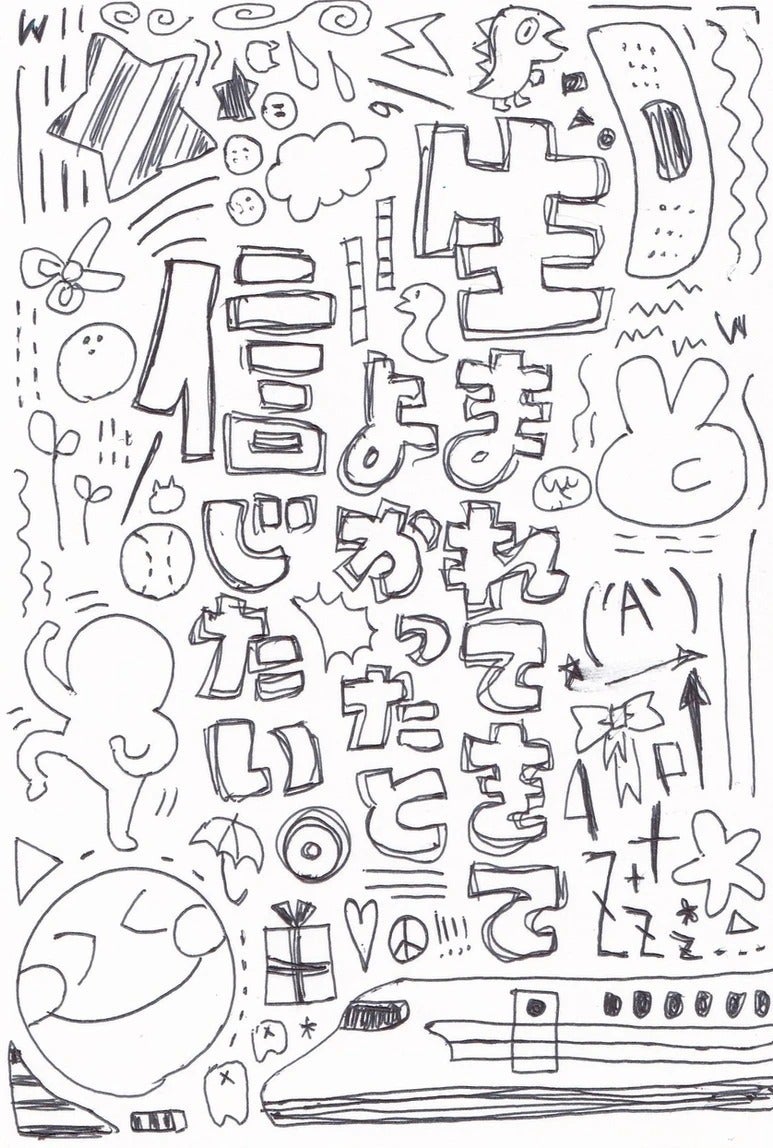 生まれてきて
よかったと
信じたい
('A`)
Zzz